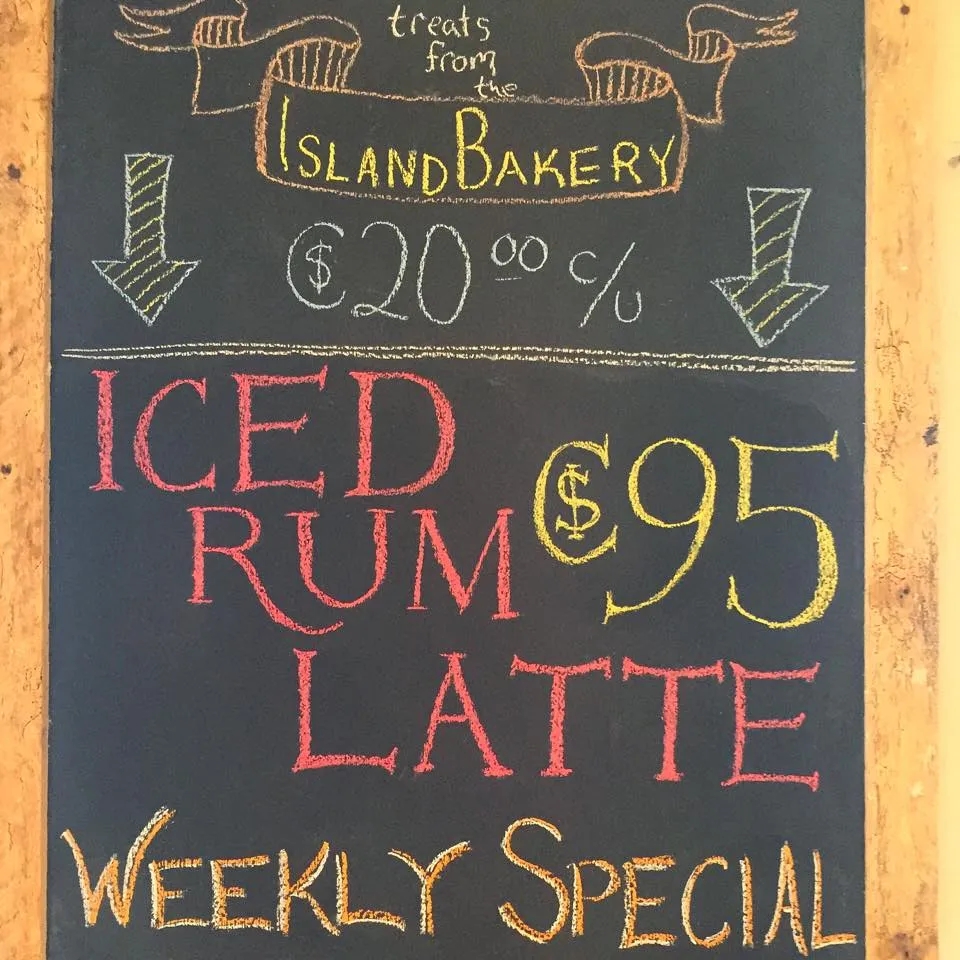 treats
from
the
ISLAND BAKERY
₡$20⁰⁰ c/u
ICED
RUM ₡$95
LATTE
WEEKLY SPECIAL